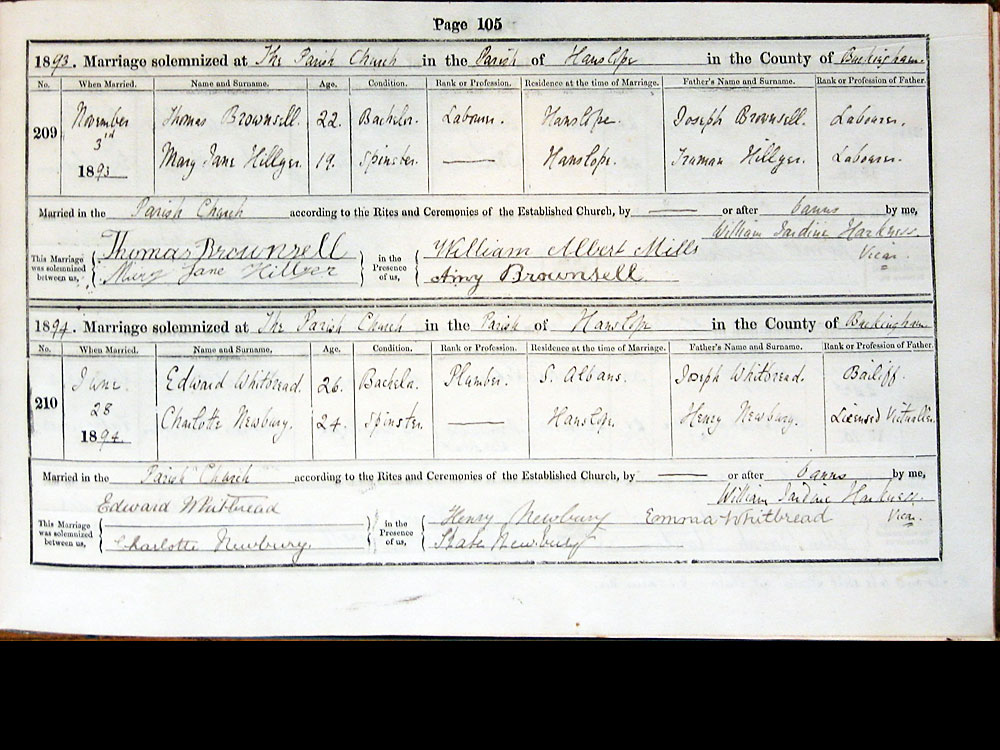 Page 105
1893. Marriage solemnized at The Parish Church in the Parish of Hanslope in the County of Buckingham
No. When Married. Name and Surname. Age. Condition. Rank or Profession. Residence at the time of Marriage. Father's Name and Surname. Rank or Profession of Father.
209 November 3rd 1893 Thomas Brownsell. 22. Bachelor. Labourer. Hanslope. Joseph Brownsell. Labourer.
Mary Jane Hillyer. 19. Spinster. Hanslope. Truman Hillyer. Labourer.
Married in the Parish Church according to the Rites and Ceremonies of the Established Church, by — or after banns by me,
William Jardine Harkness.
Vicar.
This Marriage was solemnized between us, Thomas Brownsell in the Presence of us, William Albert Mills
Mary Jane Hillyer Amy Brownsell
1894. Marriage solemnized at The Parish Church in the Parish of Hanslope in the County of Buckingham
No. When Married. Name and Surname. Age. Condition. Rank or Profession. Residence at the time of Marriage. Father's Name and Surname. Rank or Profession of Father.
210 June 28 1894. Edward Whitbread. 26. Bachelor Plumber. S. Albans. Joseph Whitbread. Bailiff.
Charlotte Newbury. 24. Spinster. Hanslope. Henry Newbury. Licensed Victualler
Married in the Parish Church according to the Rites and Ceremonies of the Established Church, by — or after banns by me,
William Jardine Harkness.
Vicar.
This Marriage was solemnized between us, Edward Whitbread in the Presence of us, Henry Newbury Emma Whitbread
Charlotte Newbury. Newbury